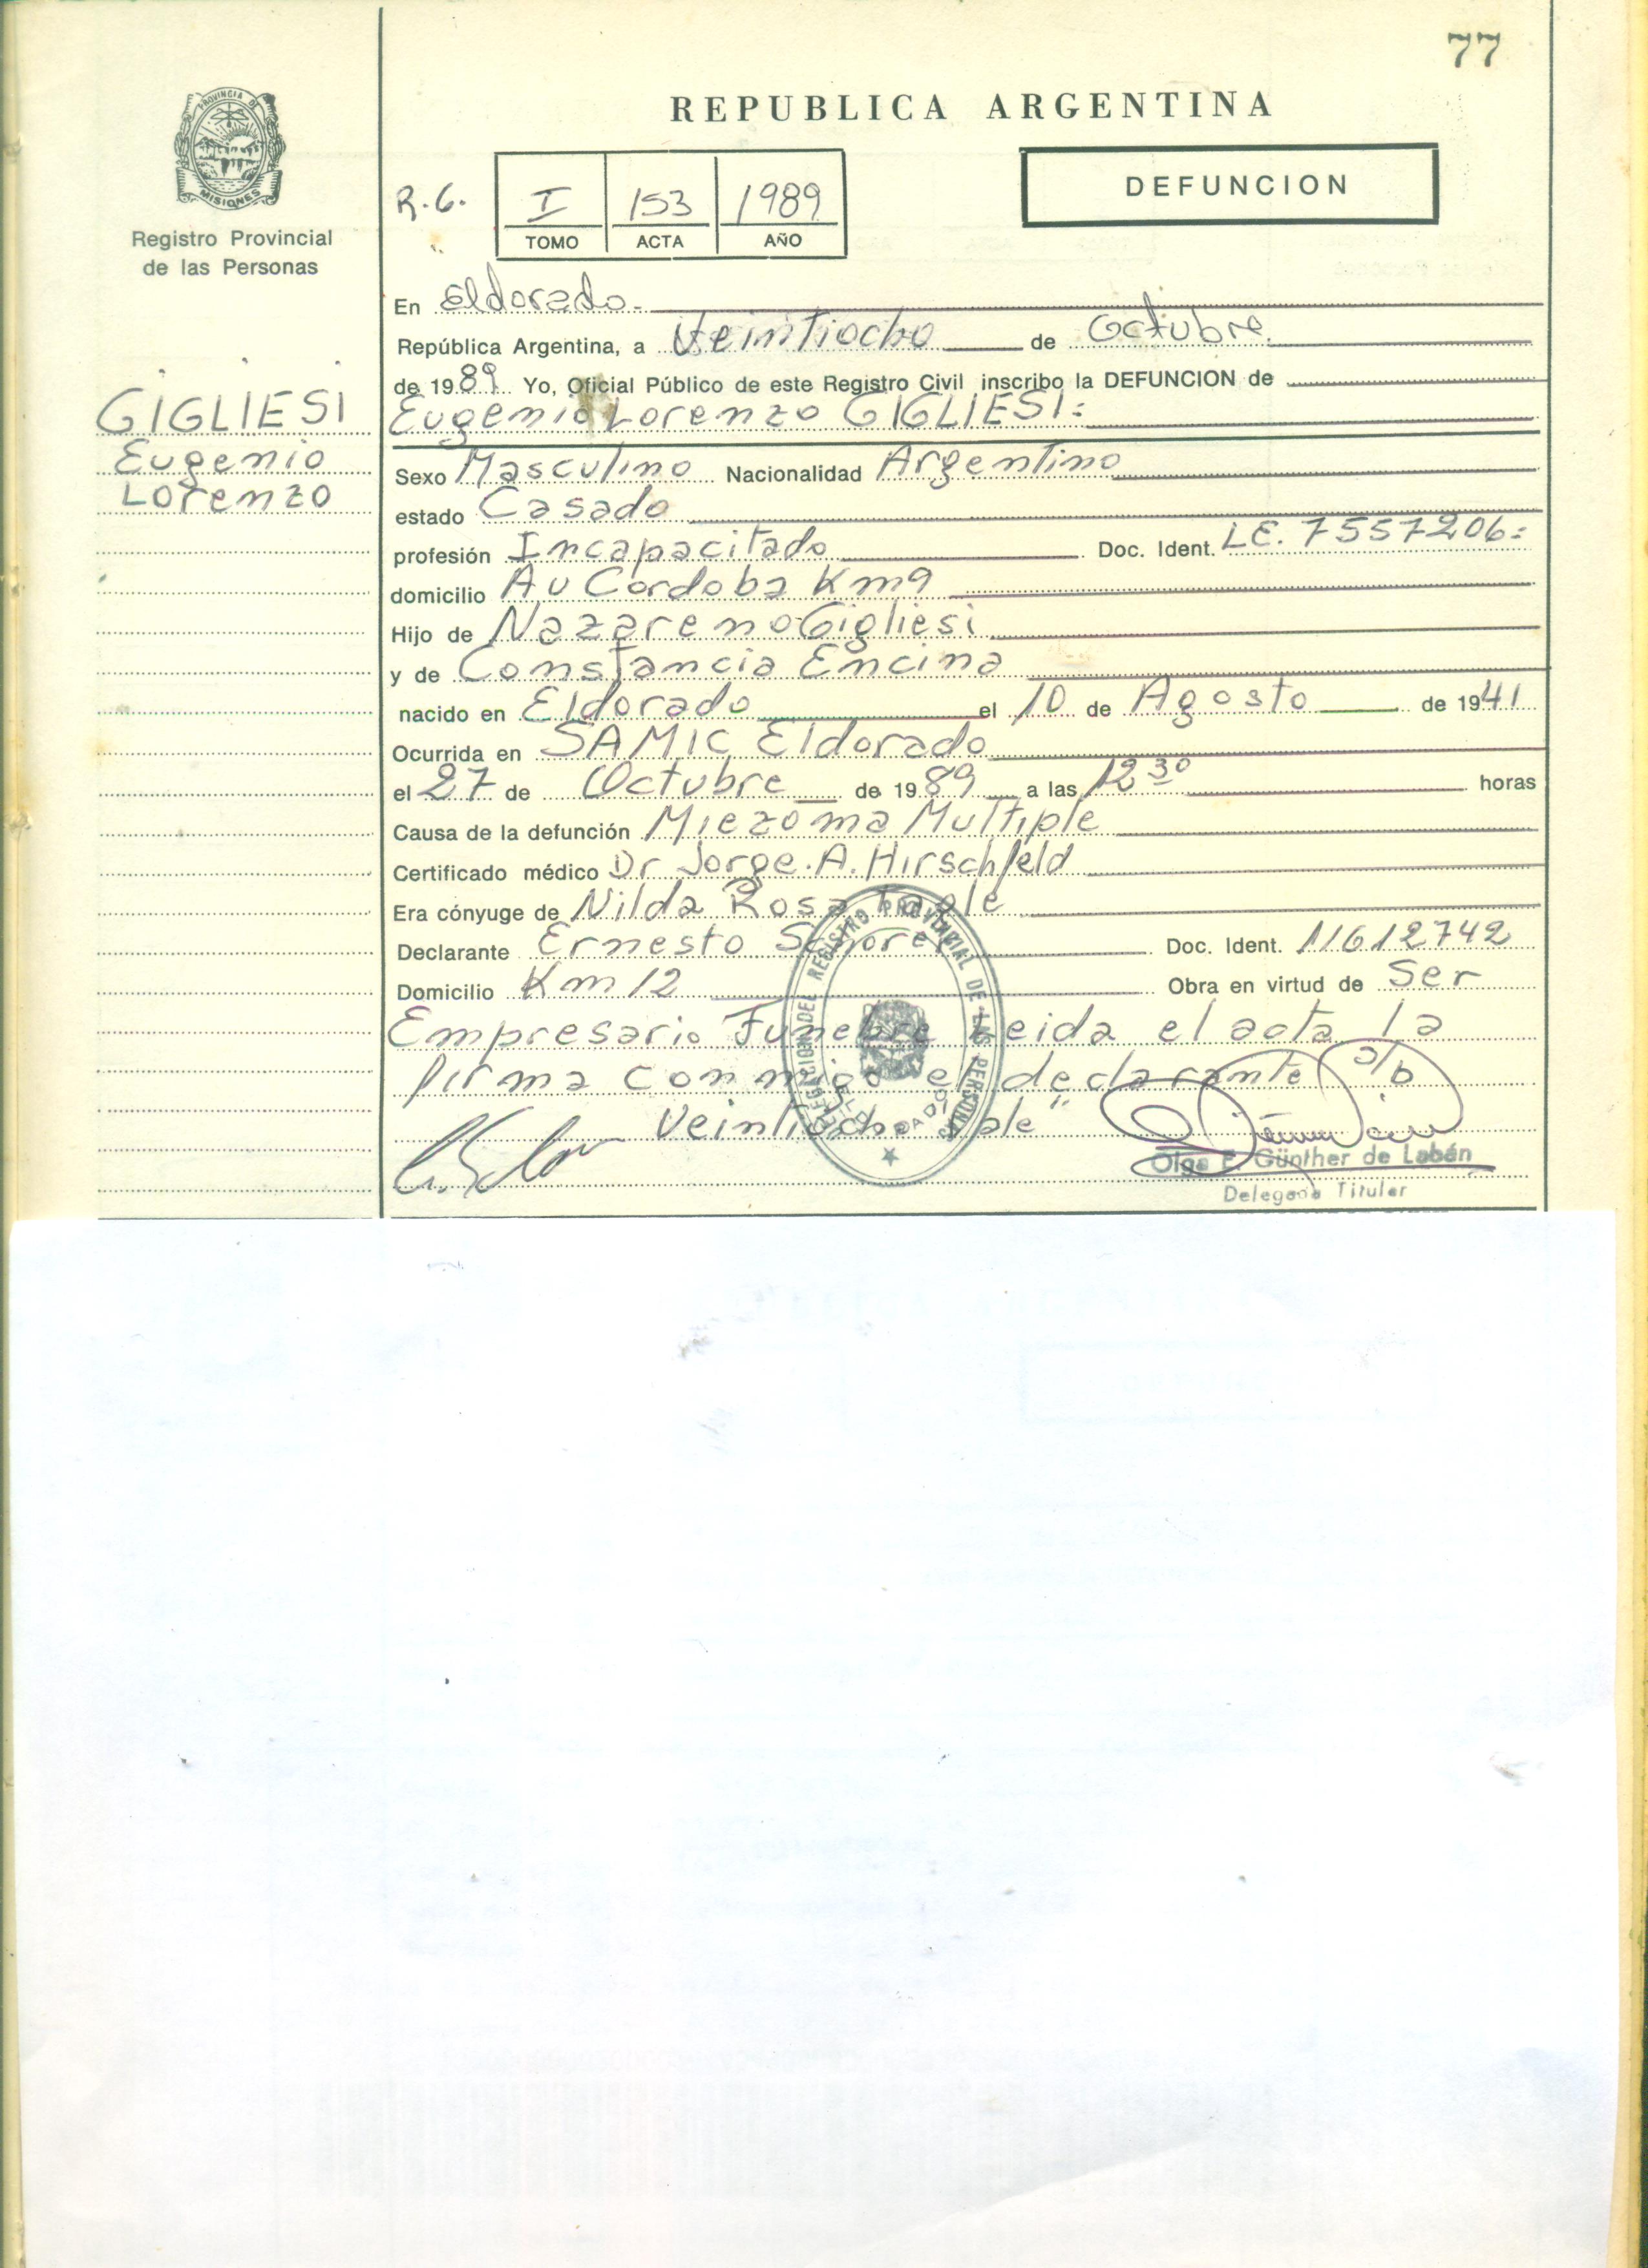 77
REPUBLICA ARGENTINA
PROVINCIA DE
MISIONES
Registro Provincial
de las Personas
R.G. I 153 1989
TOMO ACTA AÑO
DEFUNCION
En Eldorado.
República Argentina, a Veintiocho de Octubre.
de 1989 Yo, Oficial Público de este Registro Civil inscribo la DEFUNCION de
Eugenio Lorenzo GIGLIESI:
GIGLIESI
Eugenio
Lorenzo
Sexo Masculino Nacionalidad Argentino
estado Casado
profesión Incapacitado Doc. Ident. LE. 7557206:
domicilio Av Cordoba Km9
Hijo de Nazareno Gigliesi
y de Constancia Encina
nacido en Eldorado el 10 de Agosto de 1941
Ocurrida en SAMIC Eldorado
el 27 de Octubre de 1989 a las 12 30 horas
Causa de la defunción Miezoma Multiple
Certificado médico Dr Jorge.A.Hirschfeld
Era cónyuge de Nilda Rosa
Declarante Ernesto Doc. Ident. 11612742
Domicilio Km 12 Obra en virtud de Ser
Empresario Funebre Leida el acta la
firma conmigo el declarante s/b
Veintiocho Vale"
DELEGACION DEL REGISTRO PROVINCIAL DE LAS PERSONAS
ELDORADO
Olga E. Günther de Labán
Delegada Titular